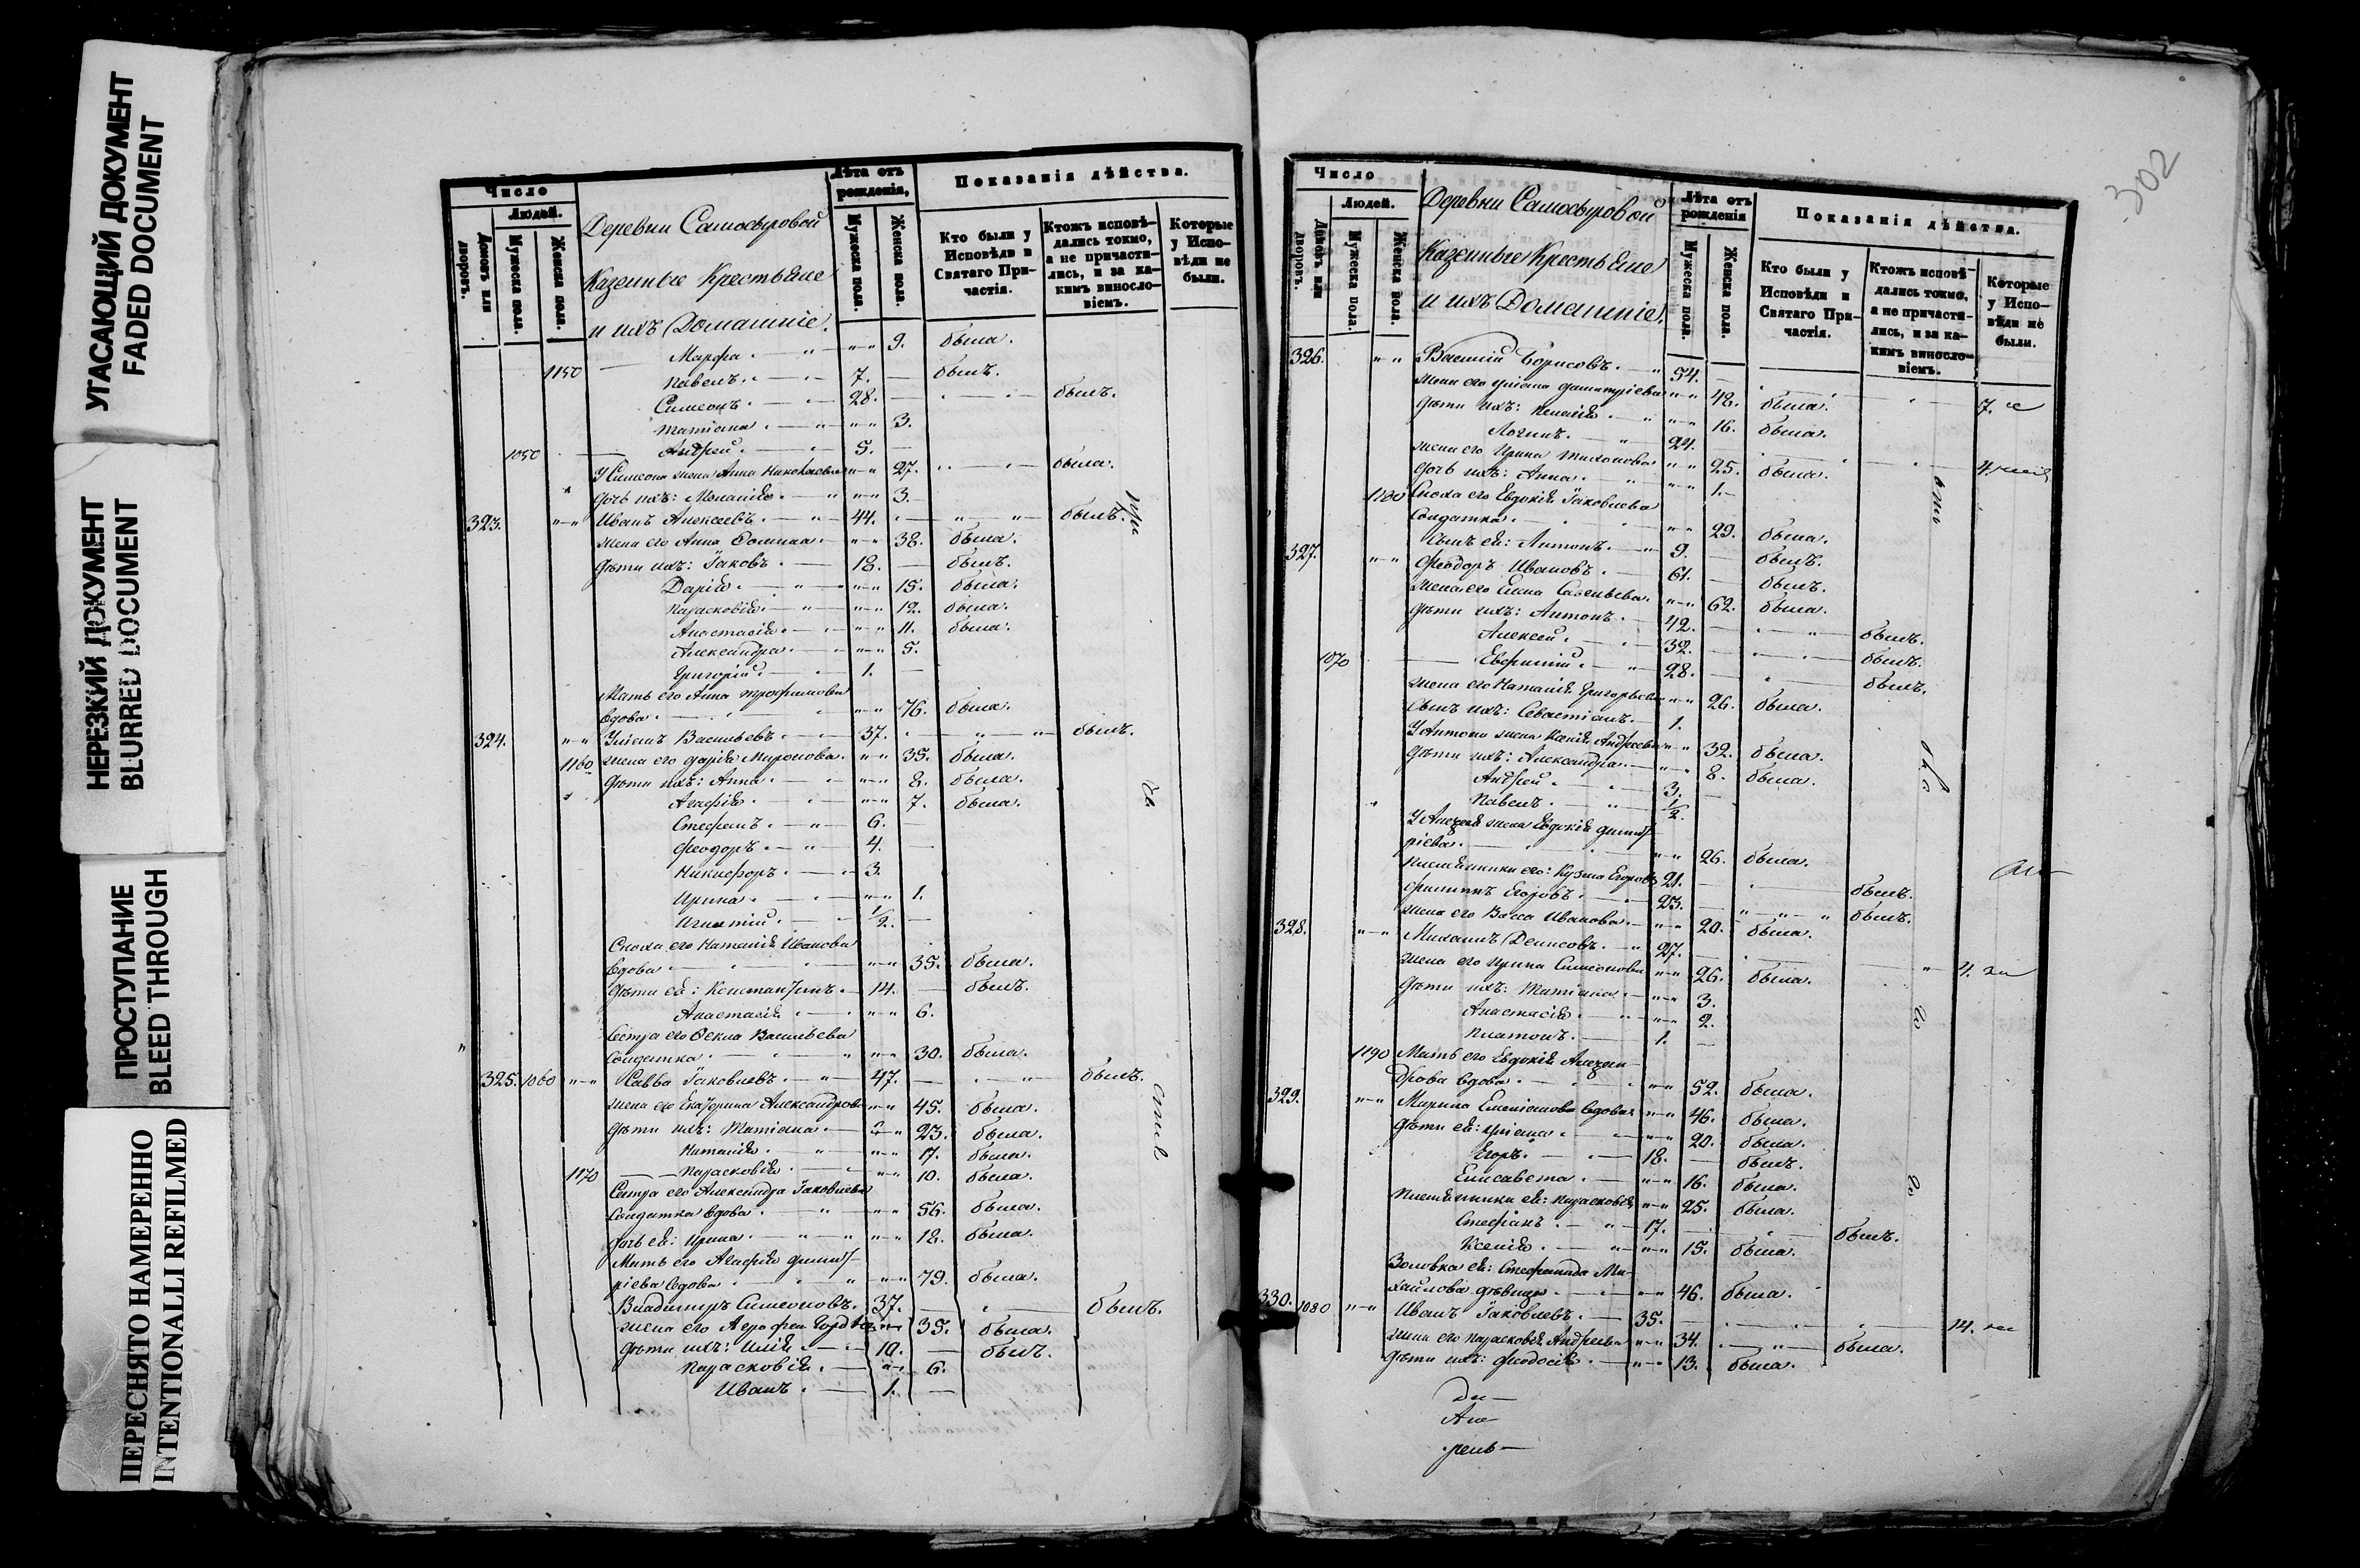 УГАСАЮЩИЙ ДОКУМЕНТ
FADED DOCUMENT
НЕРЕЗКИЙ ДОКУМЕНТ
BLURRED DOCUMENT
ПРОСТУПАНИЕ
BLEED THROUGH
ПЕРЕСНЯТО НАМЕРЕННО
INTENTIONALLI REFILMED
Число
Людей.
Домовъ или дворовъ.
Мужеска пола.
Женска пола.
Деревни Самосыровой
Казенные Крестьяне
и ихъ Домашніе.
Лѣта отъ рожденія,
Мужеска пола.
Женска пола.
Показанія дѣйства.
Кто были у Исповѣди и Святаго При-частія.
Ктожъ исповѣ-дались токмо, а не причасти-лись, и за ка-кимъ винosло-віемъ.
Которые у Испо-вѣди не были.
Марфа. 9. была.
1150 Павелъ. 7. былъ.
Симеонъ. 28. былъ.
Татіана. 3.
1050 Андрей. 5.
У Симеона жена Анна Николаева 27. была.
дочь ихъ: Меланія. 3.
323. Иванъ Алексеевъ. 44. былъ.
жена его Анна Фомина. 38. была.
дѣти ихъ: Іаковъ. 18. былъ.
Дарія. 15. была.
Парасковія. 12. была.
Анастасія. 11. была.
Александра. 5.
Григорій. 1.
Мать его Анна Трофимова
вдова. 76. была.
324. Уліанъ Васильевъ. 37. былъ.
1160 жена его Дарія Миронова. 35. была.
дѣти ихъ: Анна. 8. была.
Агафія. 7. была.
Стефанъ. 6.
Феодоръ. 4.
Никифоръ. 3.
Ирина. 1.
Игнатій. 1/2.
Сноха его Наталія Иванова
вдова. 35. была.
дѣти ея: Константинъ. 14. былъ.
Анастасія. 6.
Сестра его Фекла Васильева
солдатка. 30. была.
325. 1060 Савва Іаковлевъ. 47. былъ.
жена его Екатерина Александрова 45. была.
дѣти ихъ: Татіана. 23. была.
Наталія. 17. была.
1170 Парасковія. 10. была.
Сестра его Александра Іаковлева
солдатка вдова. 56. была.
дочь ея: Ирина. 18. была.
Мать его Агафія Димит
ріева вдова. 79. была.
Владимиръ Симеоновъ. 37. былъ.
жена его 35. была.
дѣти ихъ: Илія. 10. былъ.
Парасковія. 6.
Иванъ. 1.
302
Число
Людей.
Домовъ или дворовъ.
Мужеска пола.
Женска пола.
Деревни Самосыровой
Казенные Крестьяне
и ихъ Домашніе.
Лѣта отъ рожденія
Мужеска пола.
Женска пола.
Показанія дѣйства.
Кто были у Исповѣди и Святаго При-частія.
Ктожъ исповѣ-дались токмо, а не причасти-лись, и за ка-кимъ винosло-віемъ.
Которые у Испо-вѣди не были.
326. Василій Борисовъ. 54. 7.
жена его Уліана Димитріева 48. была.
дѣти ихъ: Пелагія. 16. была.
Логинъ. 24. 4.
жена его Ирина Тихонова 25. была.
дочь ихъ: Анна. 1.
1180 Сноха его Евдокія Іаковлева
солдатка. 29. была.
сынъ ея: Антонъ. 9. былъ.
327. Феодоръ Ивановъ. 61. былъ.
жена его Елена Савельева. 62. была.
дѣти ихъ: Антонъ. 42. былъ.
Алексей. 32. былъ.
1070 Евфимій. 28. былъ.
жена его Наталія Григорьева 26. была.
сынъ ихъ: Севастіанъ. 1.
У Антона жена Ксенія Андреева 32. была.
дѣти ихъ: Александра. 8. была.
Андрей. 3.
Павелъ. 1/2.
У Алексея жена Евдокія Димит
ріева. 26. была.
племянники его: Кузма Егоровъ 21. былъ.
Филиппъ Егоровъ. 23. былъ.
жена его Васса Иванова. 20. была.
328. Михаилъ Денисовъ. 27. 4.
жена его Ирина Симеонова 26. была.
дѣти ихъ: Татіана. 3.
Анастасія. 2.
Платонъ. 1.
1190 Мать его Евдокія Алексан
дрова вдова. 52. была.
329. Марина Емеліанова вдова 46. была.
дѣти ея: Уліана. 20. была.
Егоръ. 18. былъ.
Елисавета. 16. была.
племянники ея: Парасковія 25. была.
Стефанъ. 17. былъ.
Ксенія. 15. была.
Золовка ея: Стефанида Ми-
хайлова дѣвица. 46. была.
330. 1080 Иванъ Іаковлевъ. 35. 14.
жена его Парасковія Андреева 34. была.
дѣти ихъ: Феодосія. 13. была.